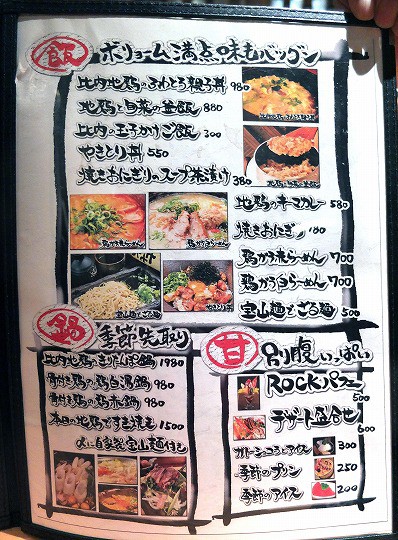 飯 ボリューム満点味もバツグン
比内地鶏のふわとろ親子丼 980
地鶏と白菜の釜飯 880
比内の玉子かけご飯 300
やきとり丼 550
焼きおにぎりのスープ茶漬け 380
地鶏のキーマカレー 580
焼きおにぎり 180
鶏がら赤らーめん 700
鶏がら白らーめん 700
宝山麺をざる麺 500
鍋 季節先取り
比内地鶏のきりたんぽ鍋 1980
骨付き鶏の鶏白湯鍋 980
骨付き鶏の鶏赤鍋 980
本日の地鶏ですき焼き 1500
〆に自家製宝山麺付き
甘 別腹いっぱい
ROCKパフェ 500
デザート盛合せ 600
ガトーショコラとアイス 300
季節のプリン 250
季節のアイス 200